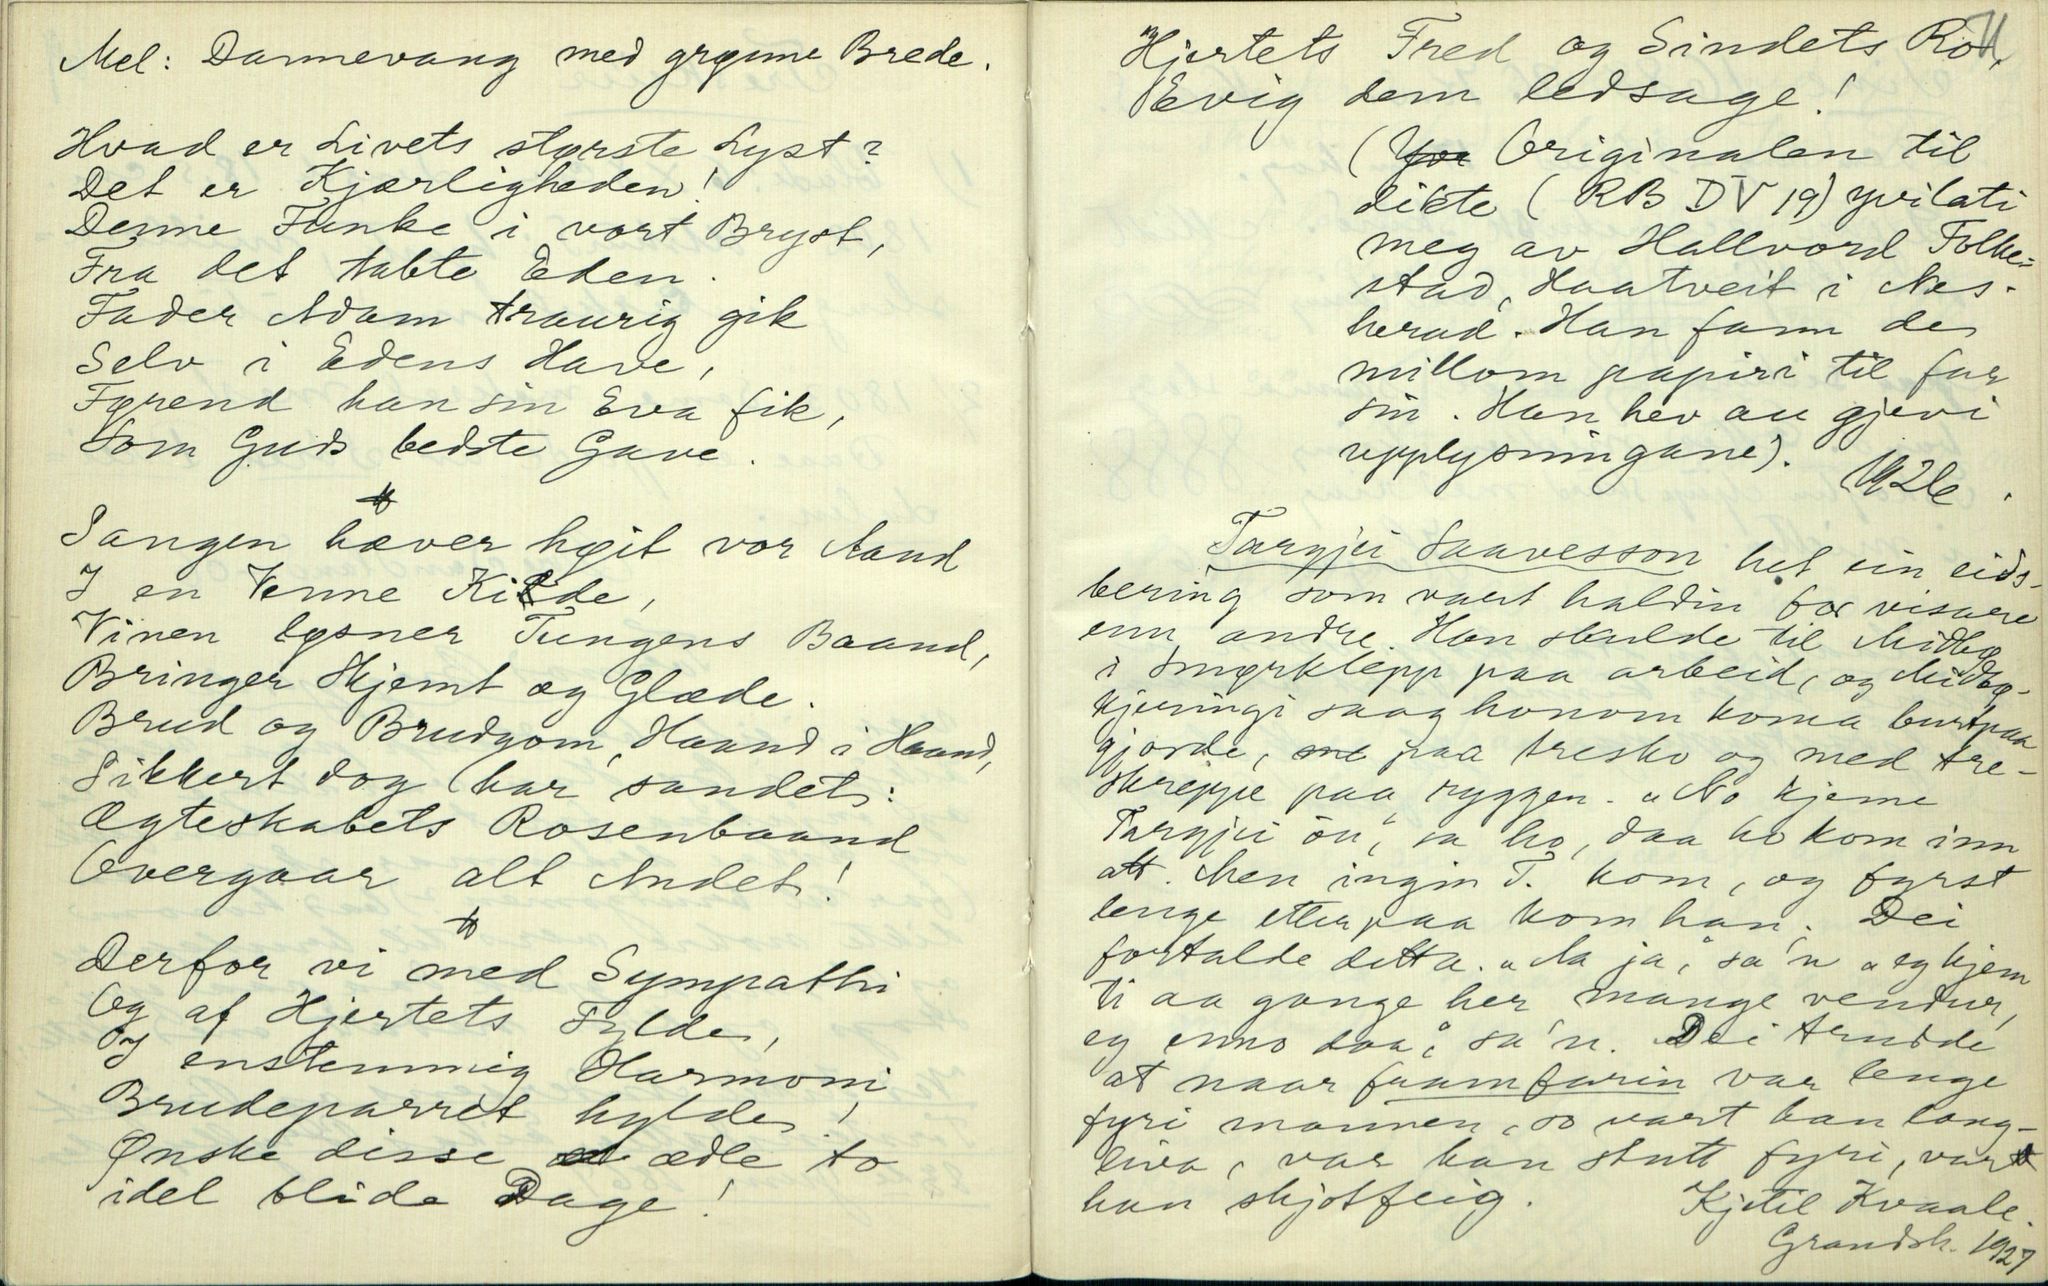 Mel: Dannevang med grønne Brede.
Hvad er Livets største Lyst?
Det er Kjærligheden!
Denne Funke i vort Bryst,
Fra det tabte Eden.
Fader Adam traurig gik
Selv i Edens Have,
Førend han sin Eva fik,
Som Guds bedste Gave.
Sangen hæver høit vor Aand
I en Venne Kilde,
Vinen løsner Tungens Baand,
Bringer Skjemt og Glæde.
Brud og Brudgom, Haand i Haand,
Sikkert dog har sandet:
Ægteskabets Rosenbaand
Overgaar alt Andet!
Derfor vi med Sympathi
Og af Hjertets Fylde,
I enstemmig Harmoni
Brudeparret hylde!
Ønske disse ædle to
idel blide Dage!
71
Hjertets Fred og Sindets Ro,
Evig dem ledsage!
(Originalen til
dikte (RB DV 19) yvilati
meg av Hallvord Folke=
stad, Haatveit i Nes-
herad. Han fann de
millom papiri til far
sin. Han hev au gjevi
upplysningane).
1926.
Targjei Saavesson het ein eids-
bering som vart haldin for visare
enn andre. Han skulde til Midbø
i Smørklepp paa arbeid, og Midbø-
kjeringi saag honom koma burtpaa
gjorde, paa tresko og med tre-
skreppe paa ryggen. "No kjeme
Targjei òu", sa ho, daa ho kom inn
att. Men ingin T. kom, og fyrst
lenge etterpaa kom han. Dei
fortalde detta. "Aa ja", sa'n "eg kjem
ti aa gange her mange vendur,
eg enno daa", sa'n. Dei trudde
at naar framfarin var lenge
fyri mannen, so vart han lang-
liva, var han stutt fyri, vart
han skjotfeig.
Kjetil Kvaale.
Grandsh. 1927